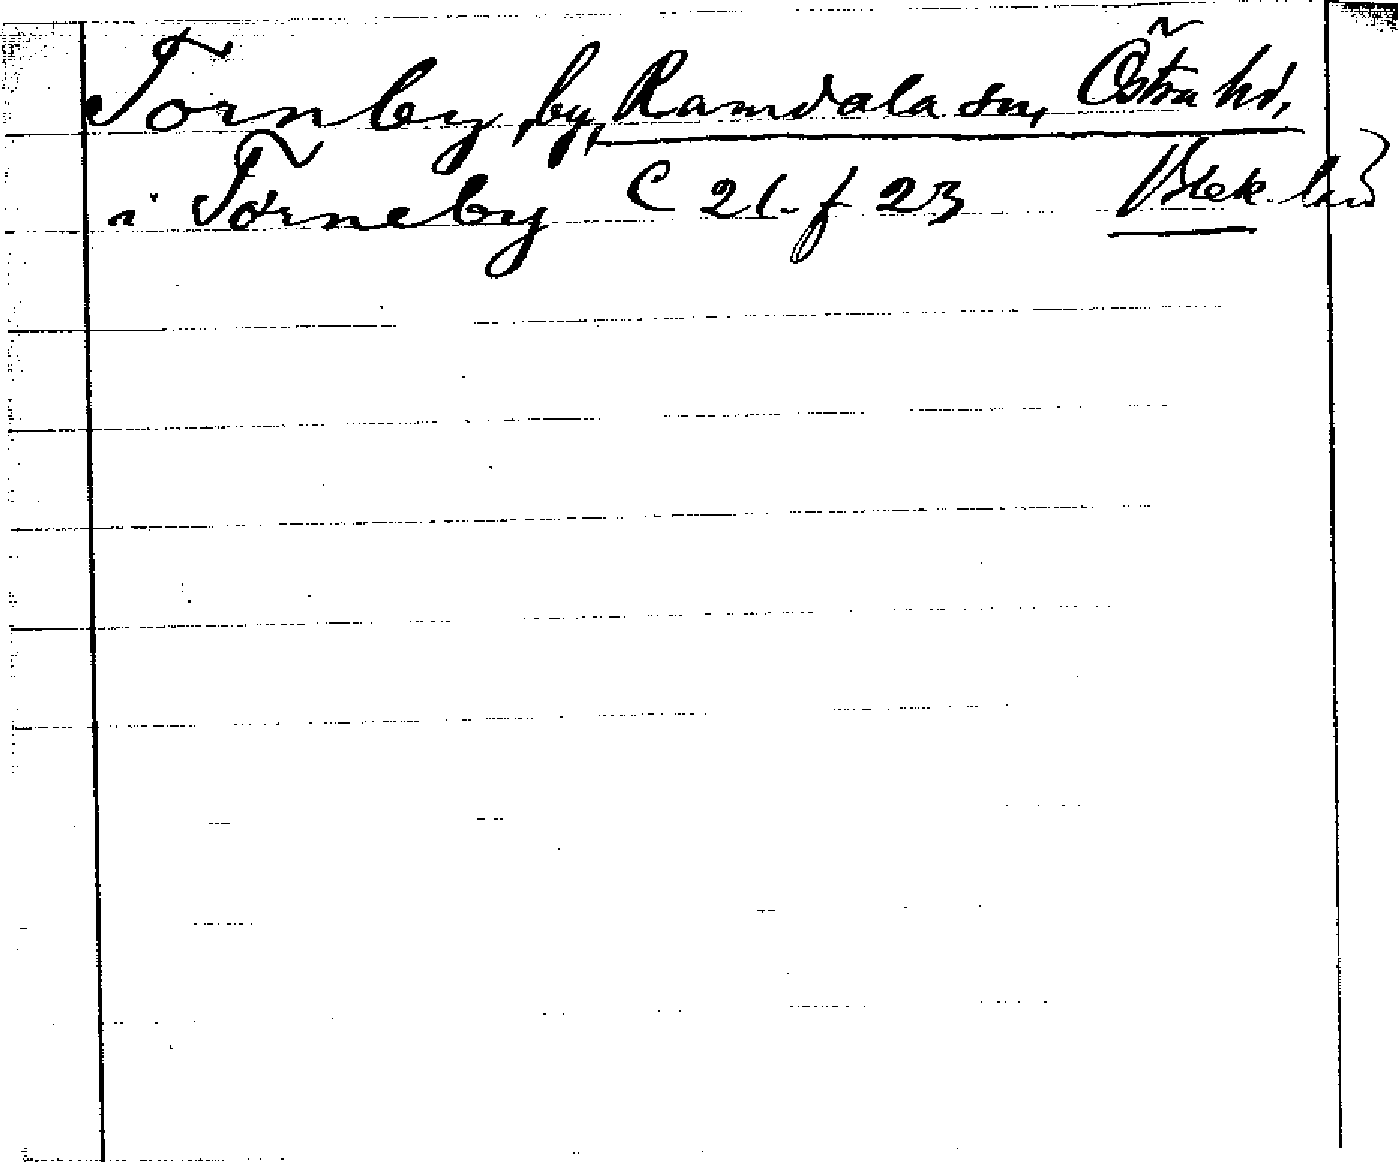 Tornby, by, Ramdala sn, Östra hd,
i Torneby C 21. f 23 Blek. län